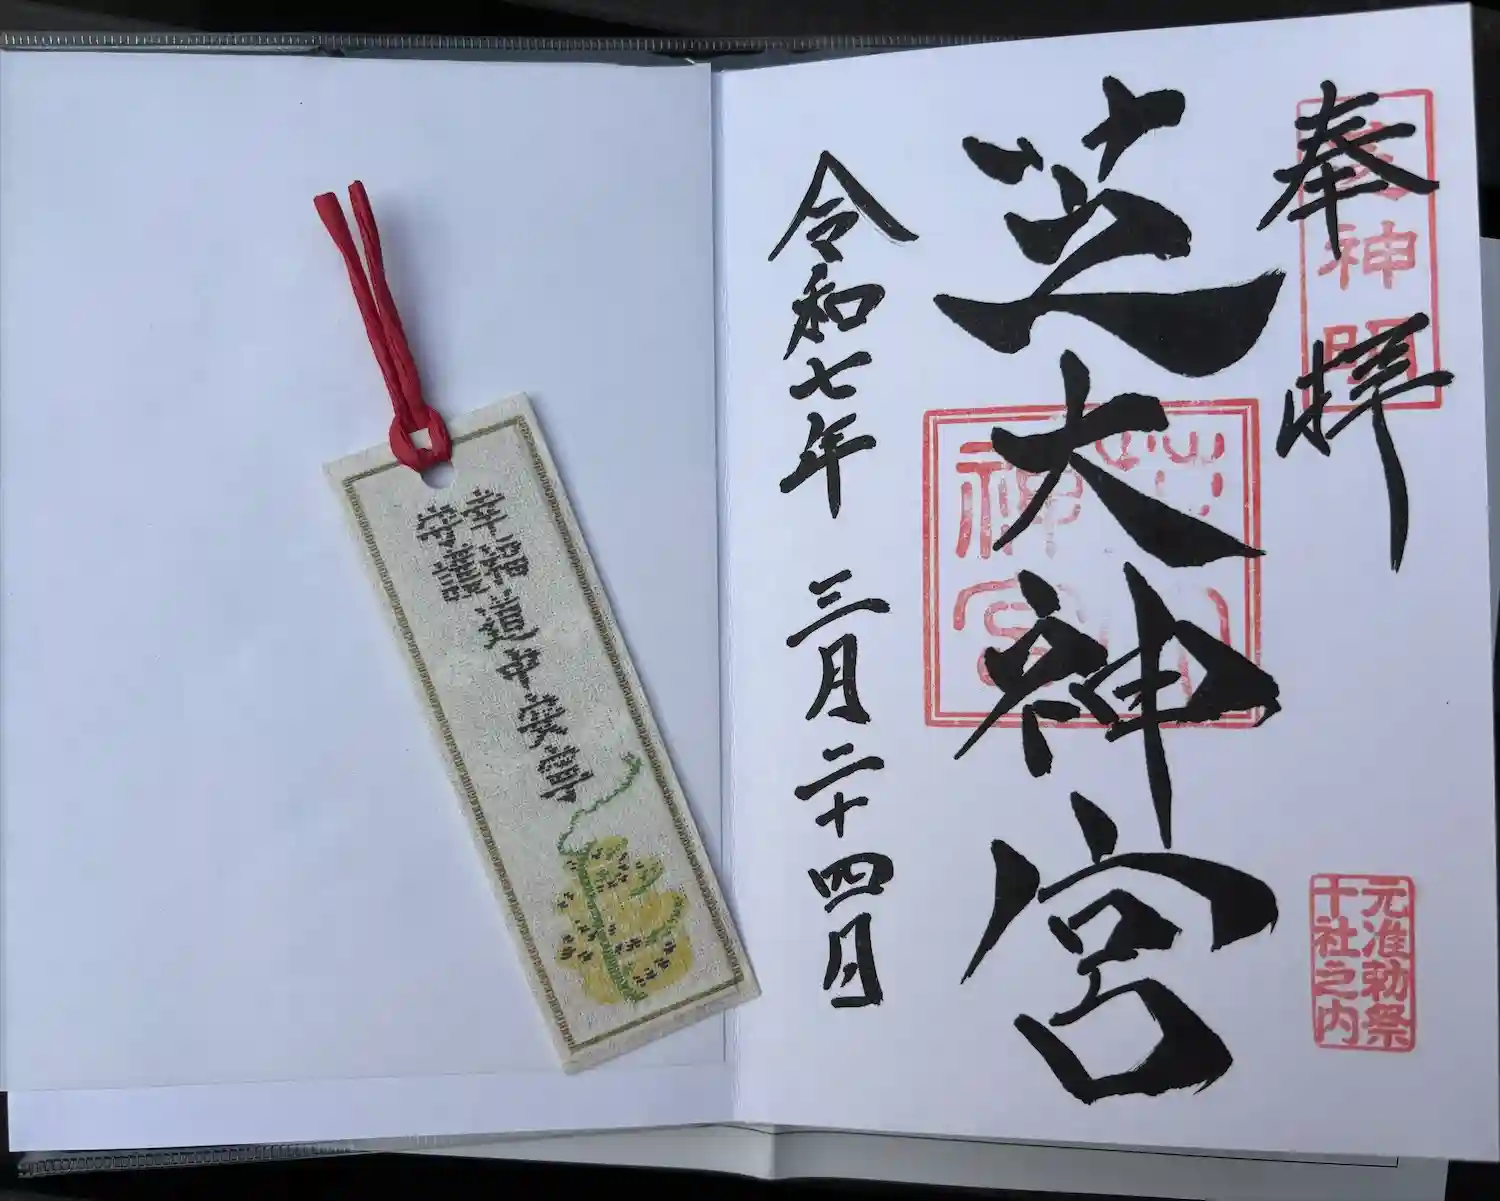 奉拝
神明
元准勅祭
十社之内
芝大神宮
令和七年 三月二十四日
幸福道中安
守護